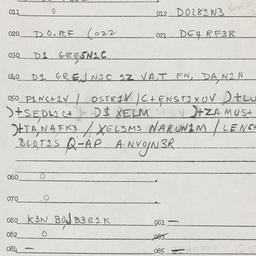 011 0 012 DOL82N3
020 D.O.RF (022 021 DE4 RF3R
030 D1 GRE5N1C
040 D1 GRE,N2C 1Z VA.T FN, DA,N2N
050 P1NC+1V / OSTR1V /C+ENST1XOV )+LU
)+SEDL1C+ D$ XELM )+ZA MUS+
)+TA,NAFK3 / XEL3M3 NARUN1M / LENC+
BLQT1S Q-AP A.NVOJN3R
060 0
070 0
080 K3N BOJB3R1K 081 —
082 0 083
084 — 085 —